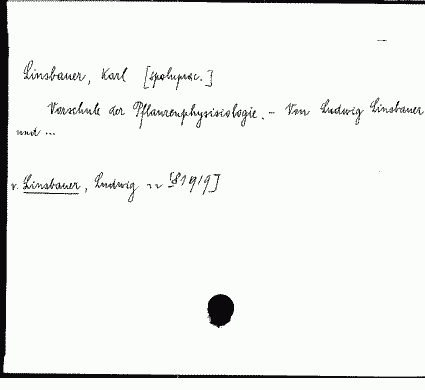 Linsbauer, Karl [spoluprac.]
Vorschule der Pflanzenphysisiologie. – Von Ludwig Linsbauer
und ...
v. Linsbauer, Ludwig [1919]